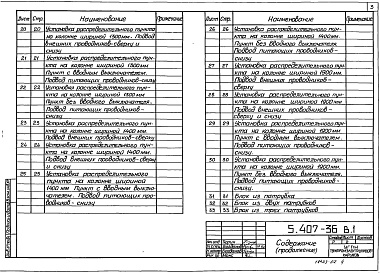 3
Лист Стр. Наименование Примечание
20 20 Установка распределительного пункта
на колонне шириной 900мм. Подвод
внешних проводников-сверху и
снизу
21 21 Установка распределительного пун-
кта на колонне шириной
Пункт с вводным выключателем.
Подвод питающих проводников-
снизу
22 22 Установка распределительного пун-
кта на колонне шириной
Пункт без вводного выключателя.
Подвод питающих проводников-
снизу
23 23 Установка распределительного пун-
кта на колонне шириной 1400 мм
Подвод внешних проводников-сверху
24 24 Установка распределительного пун-
кта на колонне шириной 1400мм.
Подвод внешних проводников-сверху
и снизу
25 25 Установка распределительного
пункта на колонне шириной
1400 мм Пункт с вводным выклю-
чателем. Подвод питающих про-
водников-снизу.
Лист Стр. Наименование Примечание
26 26 Установка распределительного пун-
кта на колонне шириной 1400мм.
Пункт без вводного выключателя.
Подвод питающих проводников-
снизу
27 27 Установка распределительного пун-
кта на колонне шириной 1900мм.
Подвод внешних проводников-
сверху
28 28 Установка распределительного пун-
кта на колонне шириной 1900мм
Подвод внешних проводников-
сверху и снизу
29 29 Установка распределительного пун-
кта на колонне шириной 1900мм.
Пункт с вводным выключателем.
Подвод питающих проводников-
снизу
30 30 Установка распределительного пун-
кта на колонне шириной 1900мм.
Пункт без вводного выключателя.
Подвод питающих проводников-
снизу.
31 31 Блок из патрубка
32 32 Блок из двух патрубков
33 33 Блок из трех патрубков
5.407-36 В.1
Содержание
(продолжение)